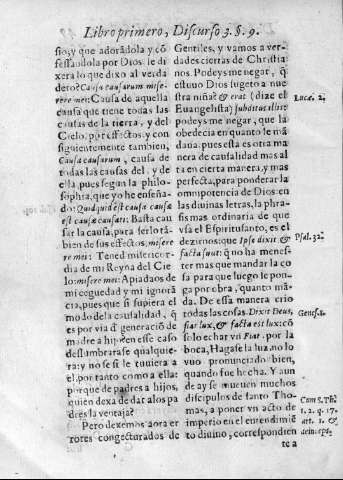 Libro primero, Discurso 3. §. 9.
sio; y que adorãdola y cõ
fessãdola por Dios. le di
xera lo que dixo al verda
dero? Causa causarum mise
rere mei: Causa de aquella
causa que tiene todas las
causas de la tierra, y del
Cielo. por effectos. y con
siguientemente tambien,
Causa causarum, causa de
todas las causas del. y de
ella. pues segun la philo-
sophia, que yo he enseña-
do: Quidquid est causa causæ
est causæ causati: Basta cau
sar la causa, para serlo tã-
bien de sus effectos; misere
rere mei: Tened misericor-
dia de mi Reyna del Cie
lo: miserere mei: Apiadaos de
mi ceguedad y mi ignorã
cia, pues que si supiera el
modo de la causalidad, q̃
es por via d̃ generació de
madre a hijo en esse caso
deslumbrarase qualquie-
ra: y no se si le tuviera a
el. por tanto como a ella:
porque de padres a hijos,
quien dexa de dar a los pa
dres la ventaja?
Pero dexemos aora er
rores congecturados de
Gentiles, y vamos a ver-
dades ciertas de Christia
nos. Podeys me negar, q̃
estuuo Dios sugeto a nues
tra niña? & erat (dize el
Euangelista) subditus illis:
podeys me negar, que la
obedecia en quanto le mã
daua. pues esta es otra ma
nera de causalidad mas al
ta en cierta manera, y mas
perfecta, para ponderar la
omnipotencia de Dios: en
las diuinas letras, la phra-
sis mas ordinaria de que
vsa el Espiritusanto, es el
dezirnos: que Ipse dixit &
facta sunt: q̃ no ha menes-
ter mas que mandar la co
sa para que luego le pon-
ga por obra, quanto mã-
da. De essa manera crio
todas las cosas. Dixit Deus,
fiat lux, & facta est lux: cõ
solo echar vn Fiat. por la
boca, Hagase la luz, no lo
vuo pronunciado bien,
quando fue hecha. Y aun
de ay se mueuen muchos
discipulos de santo Tho-
mas, a poner vn acto de
imperio en el entendimiẽ
to diuino, correspondien
te a
Lucæ. 2.
Psal. 32.
Genes. 1.
Cum S. Th.
1. 2. q. 17.
art. 1. &